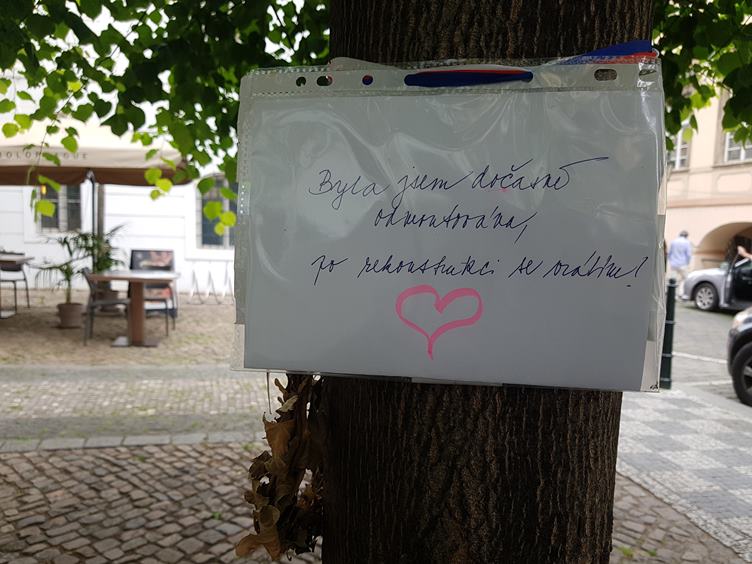 Byla jsem dočasně
odmontována,
po rekonstrukci se vrátím!